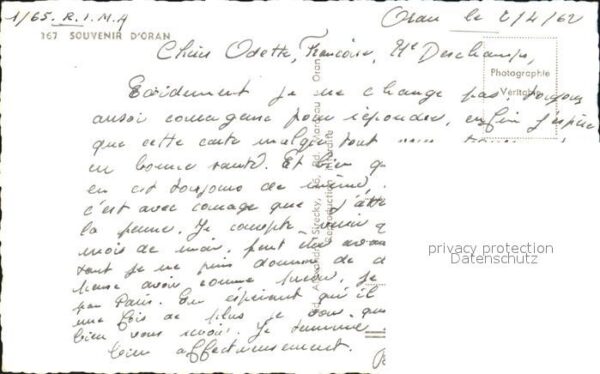 1/65. R.I.M.A
Oran le 2/4/62
167 SOUVENIR D'ORAN
Chère Odette, Françoise, Me Deschamps,
Photographie
Véritable
Evidemment je ne change pas, toujours
aussi courageux pour répondre, enfin j'espère
que cette carte malgré tout vous
en bonne santé. Et bien
en est toujours de même,
c'est avec courage que j'
la penne. Je compte venir
mois de mai, peut être avant
tout je ne puis donner de d
pense avoir comme
par Paris. En espérant qu'il
une fois de plus je vous
bien vous revoir. Je termine
bien affectueusement.
Ed. Alexandre Sirecky, 16, Bd. Marceau Oran
Reproduction interdite
privacy protection
Datenschutz